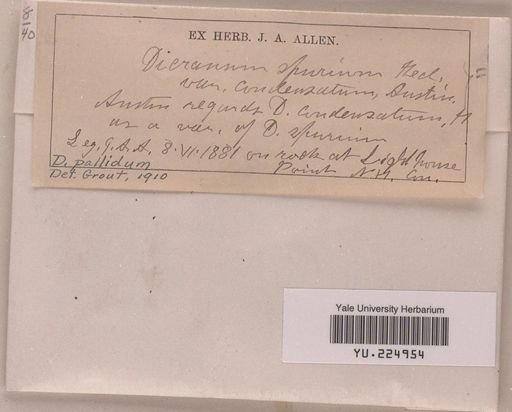 8
40
EX HERB. J. A. ALLEN.
Dicranum spurium Hed.
var. condensatum, Austin.
Austin regards D. condensatum, H
as a var. of D. spurium
Leg. J. A. A. 8.VI.1881 on rock at Light house
Point N.H. Con.
D. pallidum
Det. Grout, 1910
Yale University Herbarium
YU.224954